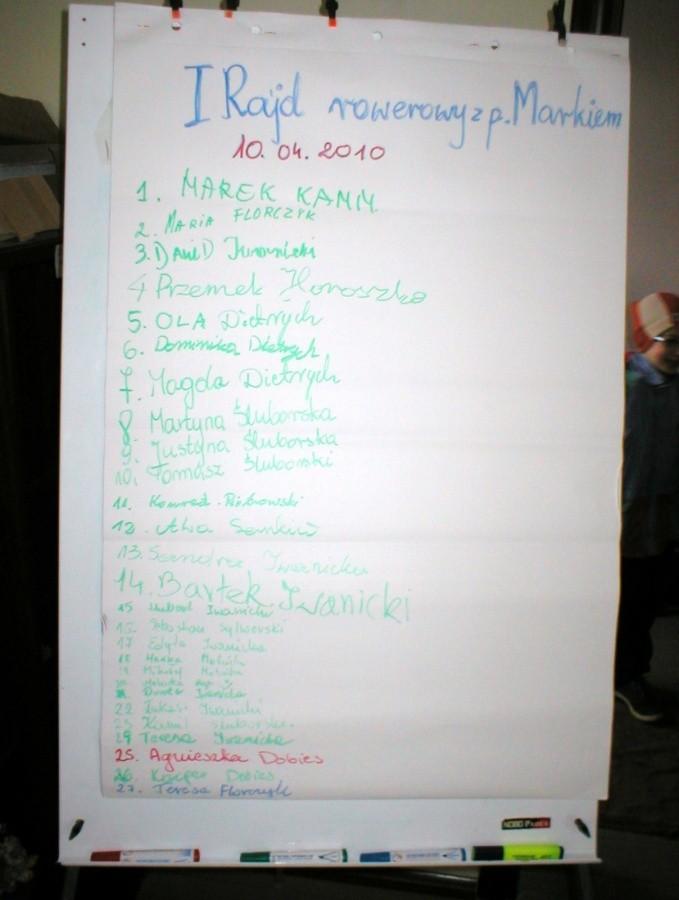 I Rajd rowerowy z p. Markiem
10. 04. 2010
1. MAREK KAMM
2. MARIA FLORCZYK
3. DAWID
4 Przemek Horoszko
5. OLA Dietrych
6. Dominika Dietrych
7. Magda Dietrych
8 Martyna Śluborska
9. Justyna Śluborska
10. Tomasz Śluborski
11. Konrad Piotrowski
12.
13. Sandra Iwanicka
14. Bartek Iwanicki
15 Hubert Iwanicki
16.
17 Edyta Iwanicka
18
19
21 Dorota Iwanicka
22 Łukasz Iwanicki
23 Kamil
24 Teresa Iwanicka
25. Agnieszka Dobies
26. Kacper Dobies
27. Teresa Florczyk
NOBO